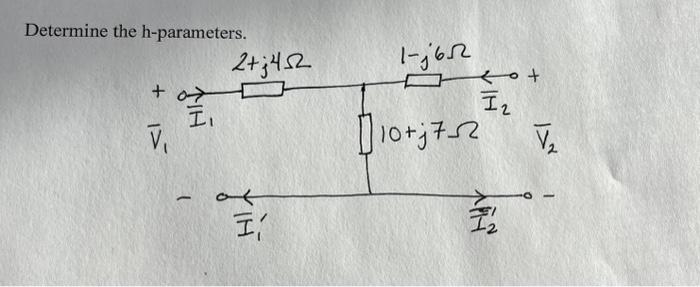 Determine the h-parameters.
2+j4Ω
1-j6Ω
+
+
I̅₁
I̅₂
V̅₁
10+j7Ω
V̅₂
-
-
I̅₁'
I̅₂'